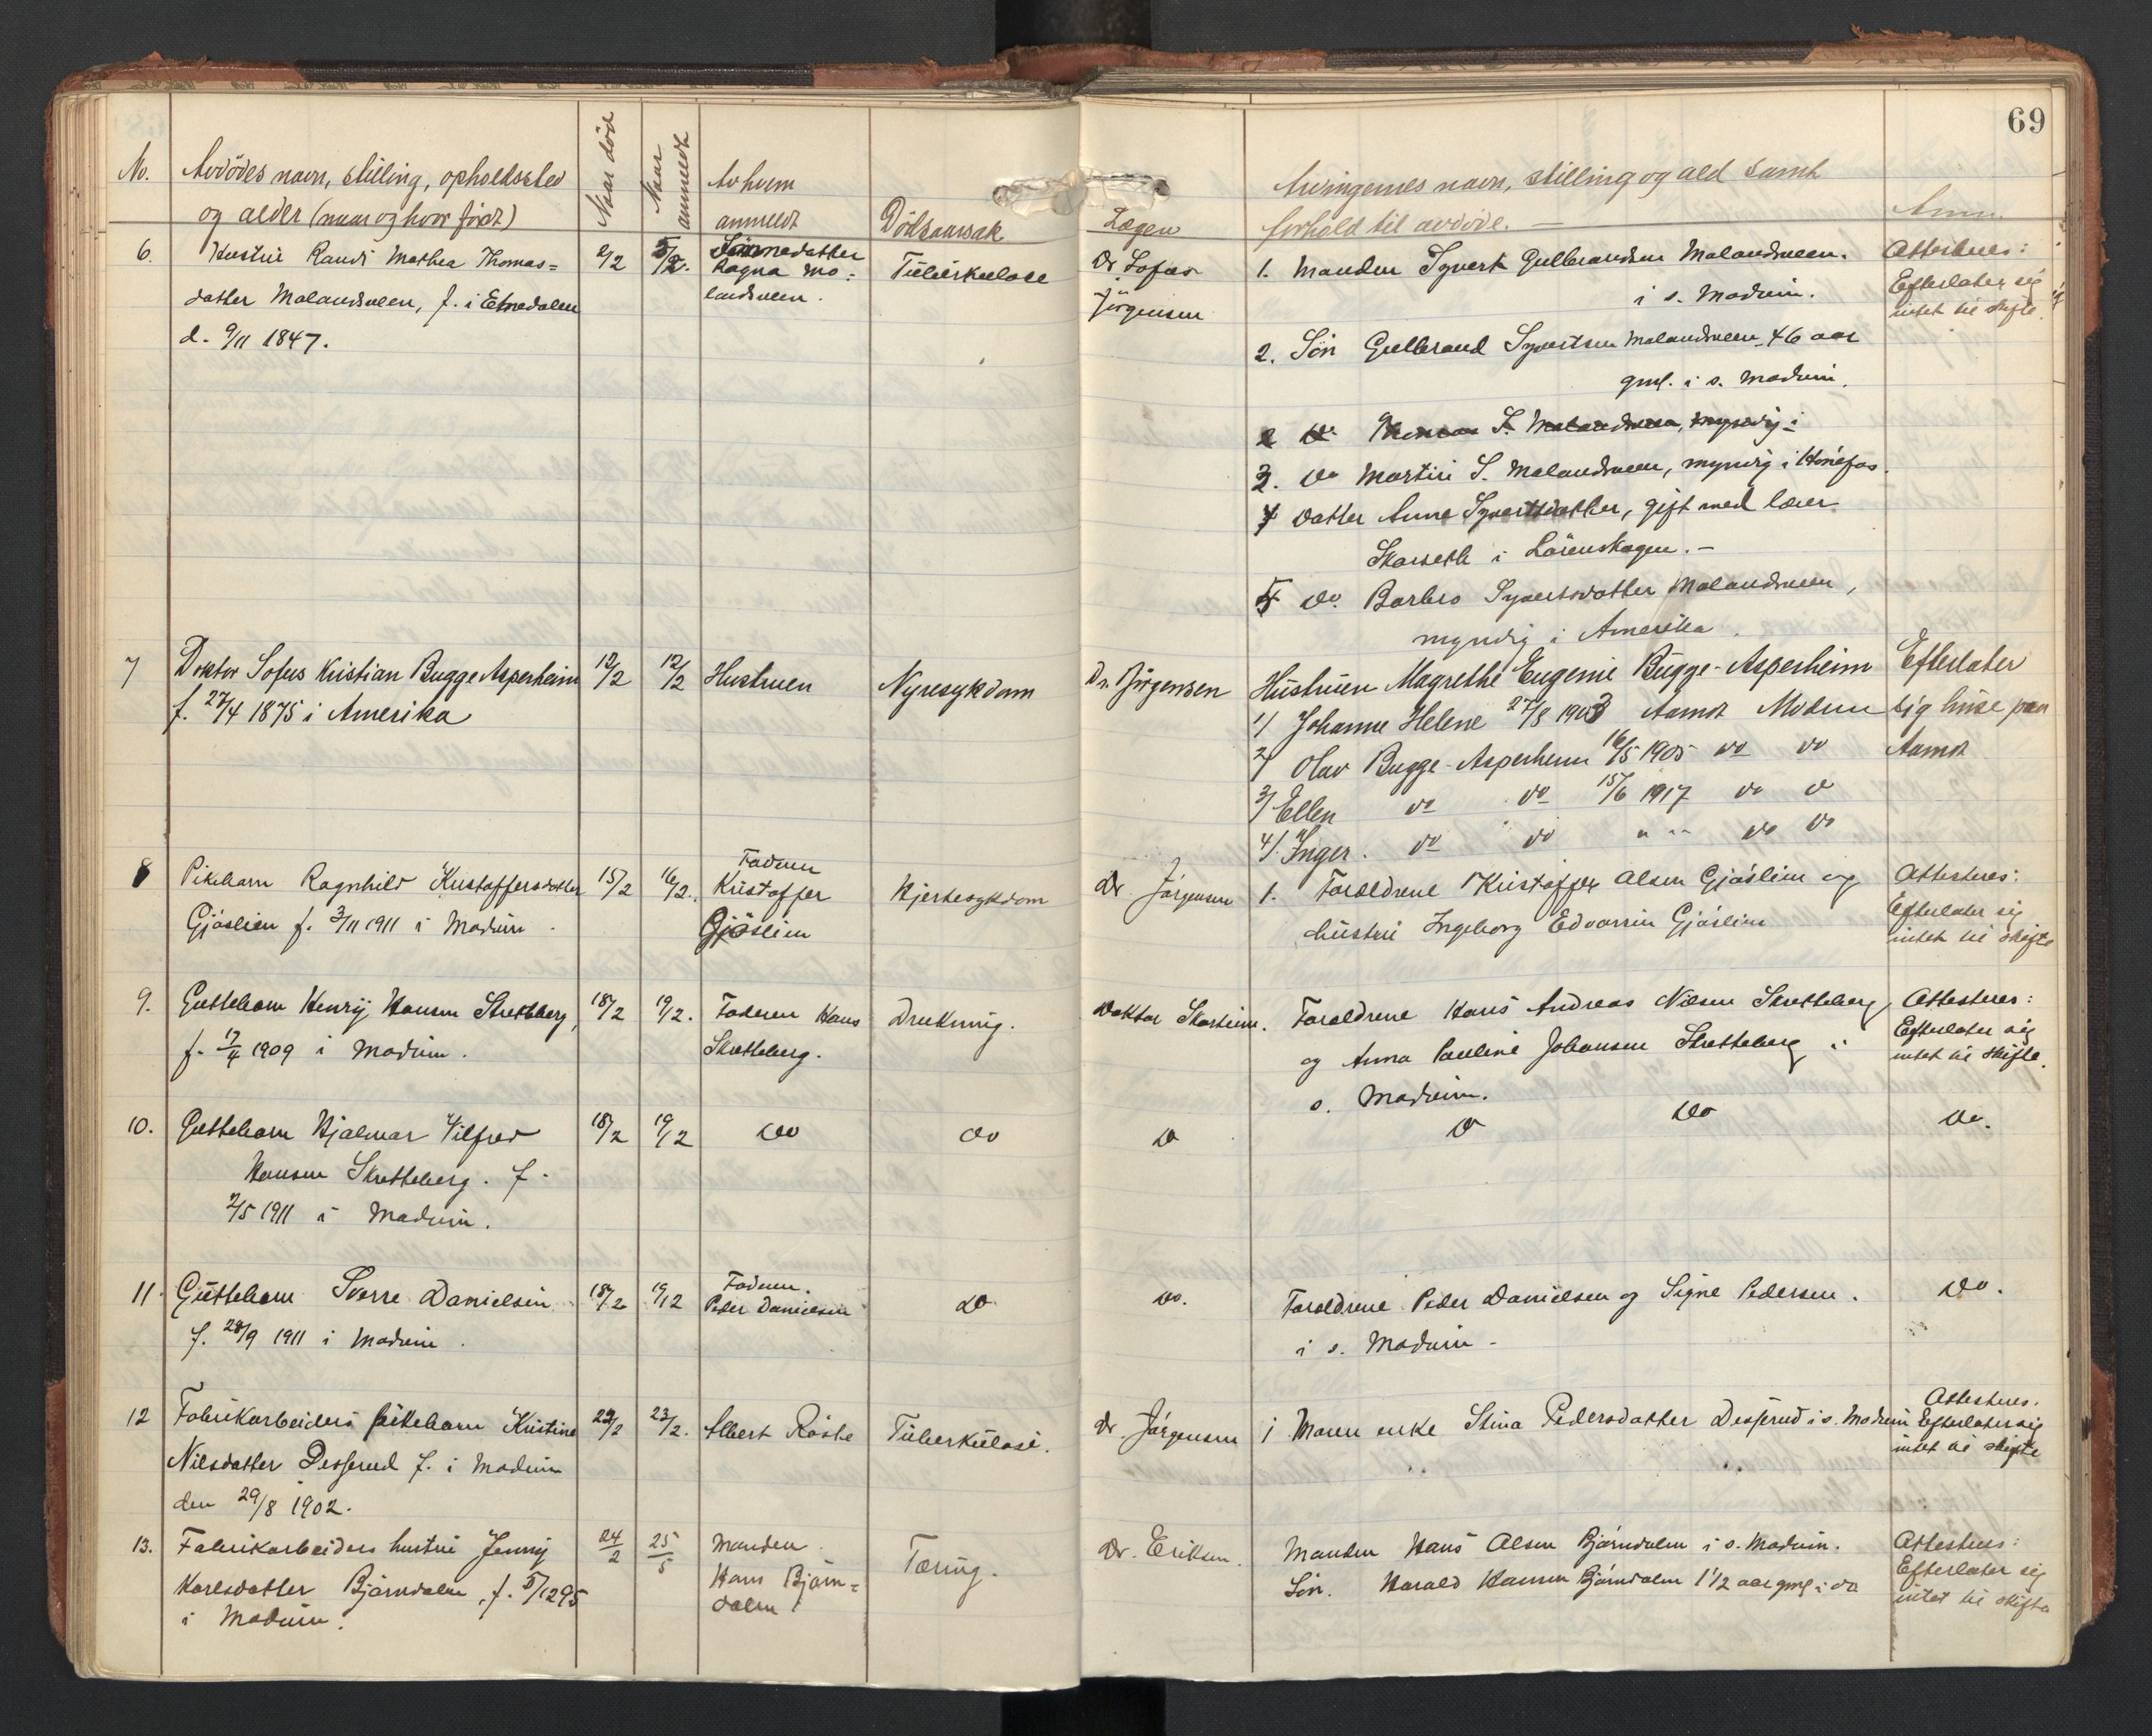 69
No.
Avdødes navn, stilling, opholdssted
og alder (naar og hvor født)
Naar død
Naar
anmeldt
Av hvem
anmeldt
Dødsaarsak
Lægen
Arvingernes navn, stilling og ald samt
forhold til avdøde. —
Anm.
6. Hustru Randi Mathea Thomas=
datter Molandsveen, f. i Etnedalen
d. 9/11 1847.
2/2
5/2.
Sønnedatter
Ragna Mo=
landsveen.
Tuberkulose
Dr Sofus
Jørgensen
1. Manden Syvert Gulbrandsen Molandsveen.
i s. Modum.
2. Søn Gulbrand Syvertsen Molandsveen, 46 aar
gml. i s. Modum.
S. Molandsveen, myndig i
3. Do Martin S. Molandsveen, myndig i Hønefos.
4 Datter Anne Syvertsdatter, gift med lærer
Skarseth i Lørenskogen. —
5 Do. Barbro Syvertsdatter Molandsveen,
myndig i Amerika.
Attesteres:
Efterlater sig
intet til skifte.
7 Doktor Sofus Kristian Bugge Asperheim
f. 27/4 1875 i Amerika
12/2
12/2
Hustruen
Nyresykdom
Dr. Jørgensen
Hustruen Magrethe Eugenie Bugge-Asperheim
1/ Johanne Helene 27/8 1903 Aamot Modum
2/ Olav Bugge-Asperheim 16/5 1905 do do
3/ Ellen do do 15/6 1917 do do
4/. Inger. do do " " do do
Efterlater
sig huse paa
Aamot
8 Pikebarn Ragnhild Kristoffersdatter
Gjøslien f. 3/11 1911 i Modum.
15/2
16/2.
Faderen
Kristoffer
Gjøslien
Hjertesykdom
Dr. Jørgensen
1. Forældrene Kristoffer Olsen Gjøslien og
hustru Ingeborg Edvardin Gjøslien
Attesteres:
Efterlater sig
intet til skifte
9. Guttebarn Henry Hansen Skretteberg,
f. 17/4 1909 i Modum.
18/2
19/2.
Faderen Hans
Skretteberg.
Drukning.
Doktor Skarheim.
Forældrene Hans Andreas Nilsen Skretteberg
og Anna Pauline Johansen Skretteberg i
s. Modum.
Attesteres:
Efterlater sig
intet til skifte.
10. Guttebarn Hjalmar Vilfred
Hansen Skretteberg. f.
2/5 1911 i Modum.
18/2
19/2
do
do
do
do do
do.
11. Guttebarn Sverre Danielsen
f. 28/9 1911 i Modum.
18/2
19/2
Faderen.
Peder Danielsen
do
do.
Forældrene Peder Danielsen og Signe Pedersen.
i s. Modum -
do.
12 Fabrikarbeiders pikebarn Kristine
Nilsdatter Desserud f. i Modum
den 29/8 1902.
22/2
23/2.
Albert Røste
Tuberkulose.
Dr. Jørgensen
1 Moren enke Stina Pedersdatter Desserud i s. Modum
Attesteres.
Efterlater sig
intet til skifte
13. Fabrikarbeiders hustru Jenny
Karlsdatter Bjørndalen, f. 5/12 95
i Modum.
24/2
25/5
Manden
Hans Bjørn=
dalen
Tæring.
Dr. Eriksen.
Manden Hans Olsen Bjørndalen i s. Modum.
Søn. Harald Hansen Bjørndalen 1 1/2 aar gml i do
Attesteres:
Efterlater sig
intet til skifte